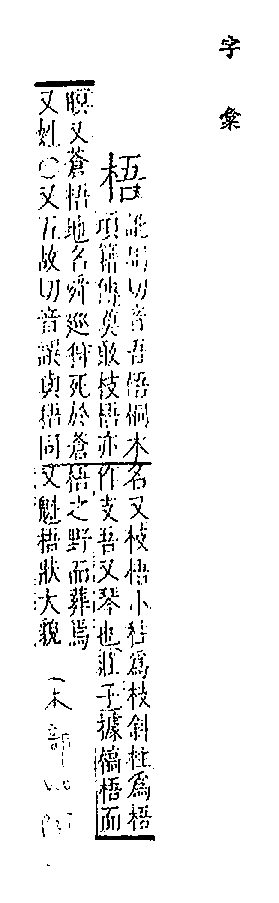 字彙
梧 訛胡切音吾梧桐木名又枝梧小柱爲枝斜柱爲梧
項籍傳莫敢枝梧亦作支吾又琴也莊子據槁梧而
瞑又蒼梧地名舜巡狩死於蒼梧之野而葬焉
又姓〇又五故切音誤與牾同又魁梧狀大貌
木部